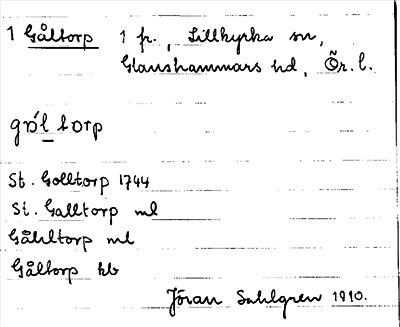 1 Gåltorp 1 fr., Lillkyrka sn,
Glanshammars hd, Ör. l.
gɷ́l torp
St. Golltorp 1744
St. Galltorp ml
Gåhltorp ml
Gåltorp kb
Jöran Sahlgren 1910.